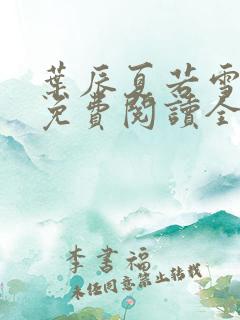 葉辰夏若雪
免費閱讀全
李書福
未经同意禁止转载